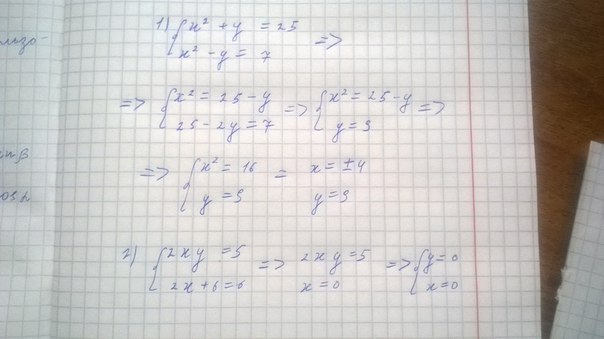 льзо-
1) { x² + y = 25
x² - y = 7 =>
=> { x² = 25 - y
25 - 2y = 7 => { x² = 25 - y
y = 9 =>
=> { x² = 16
y = 9 = x = ±4
y = 9
2) { 2xy = 5
2x + 6 = 6 => 2xy = 5
x = 0 => { y = 0
x = 0